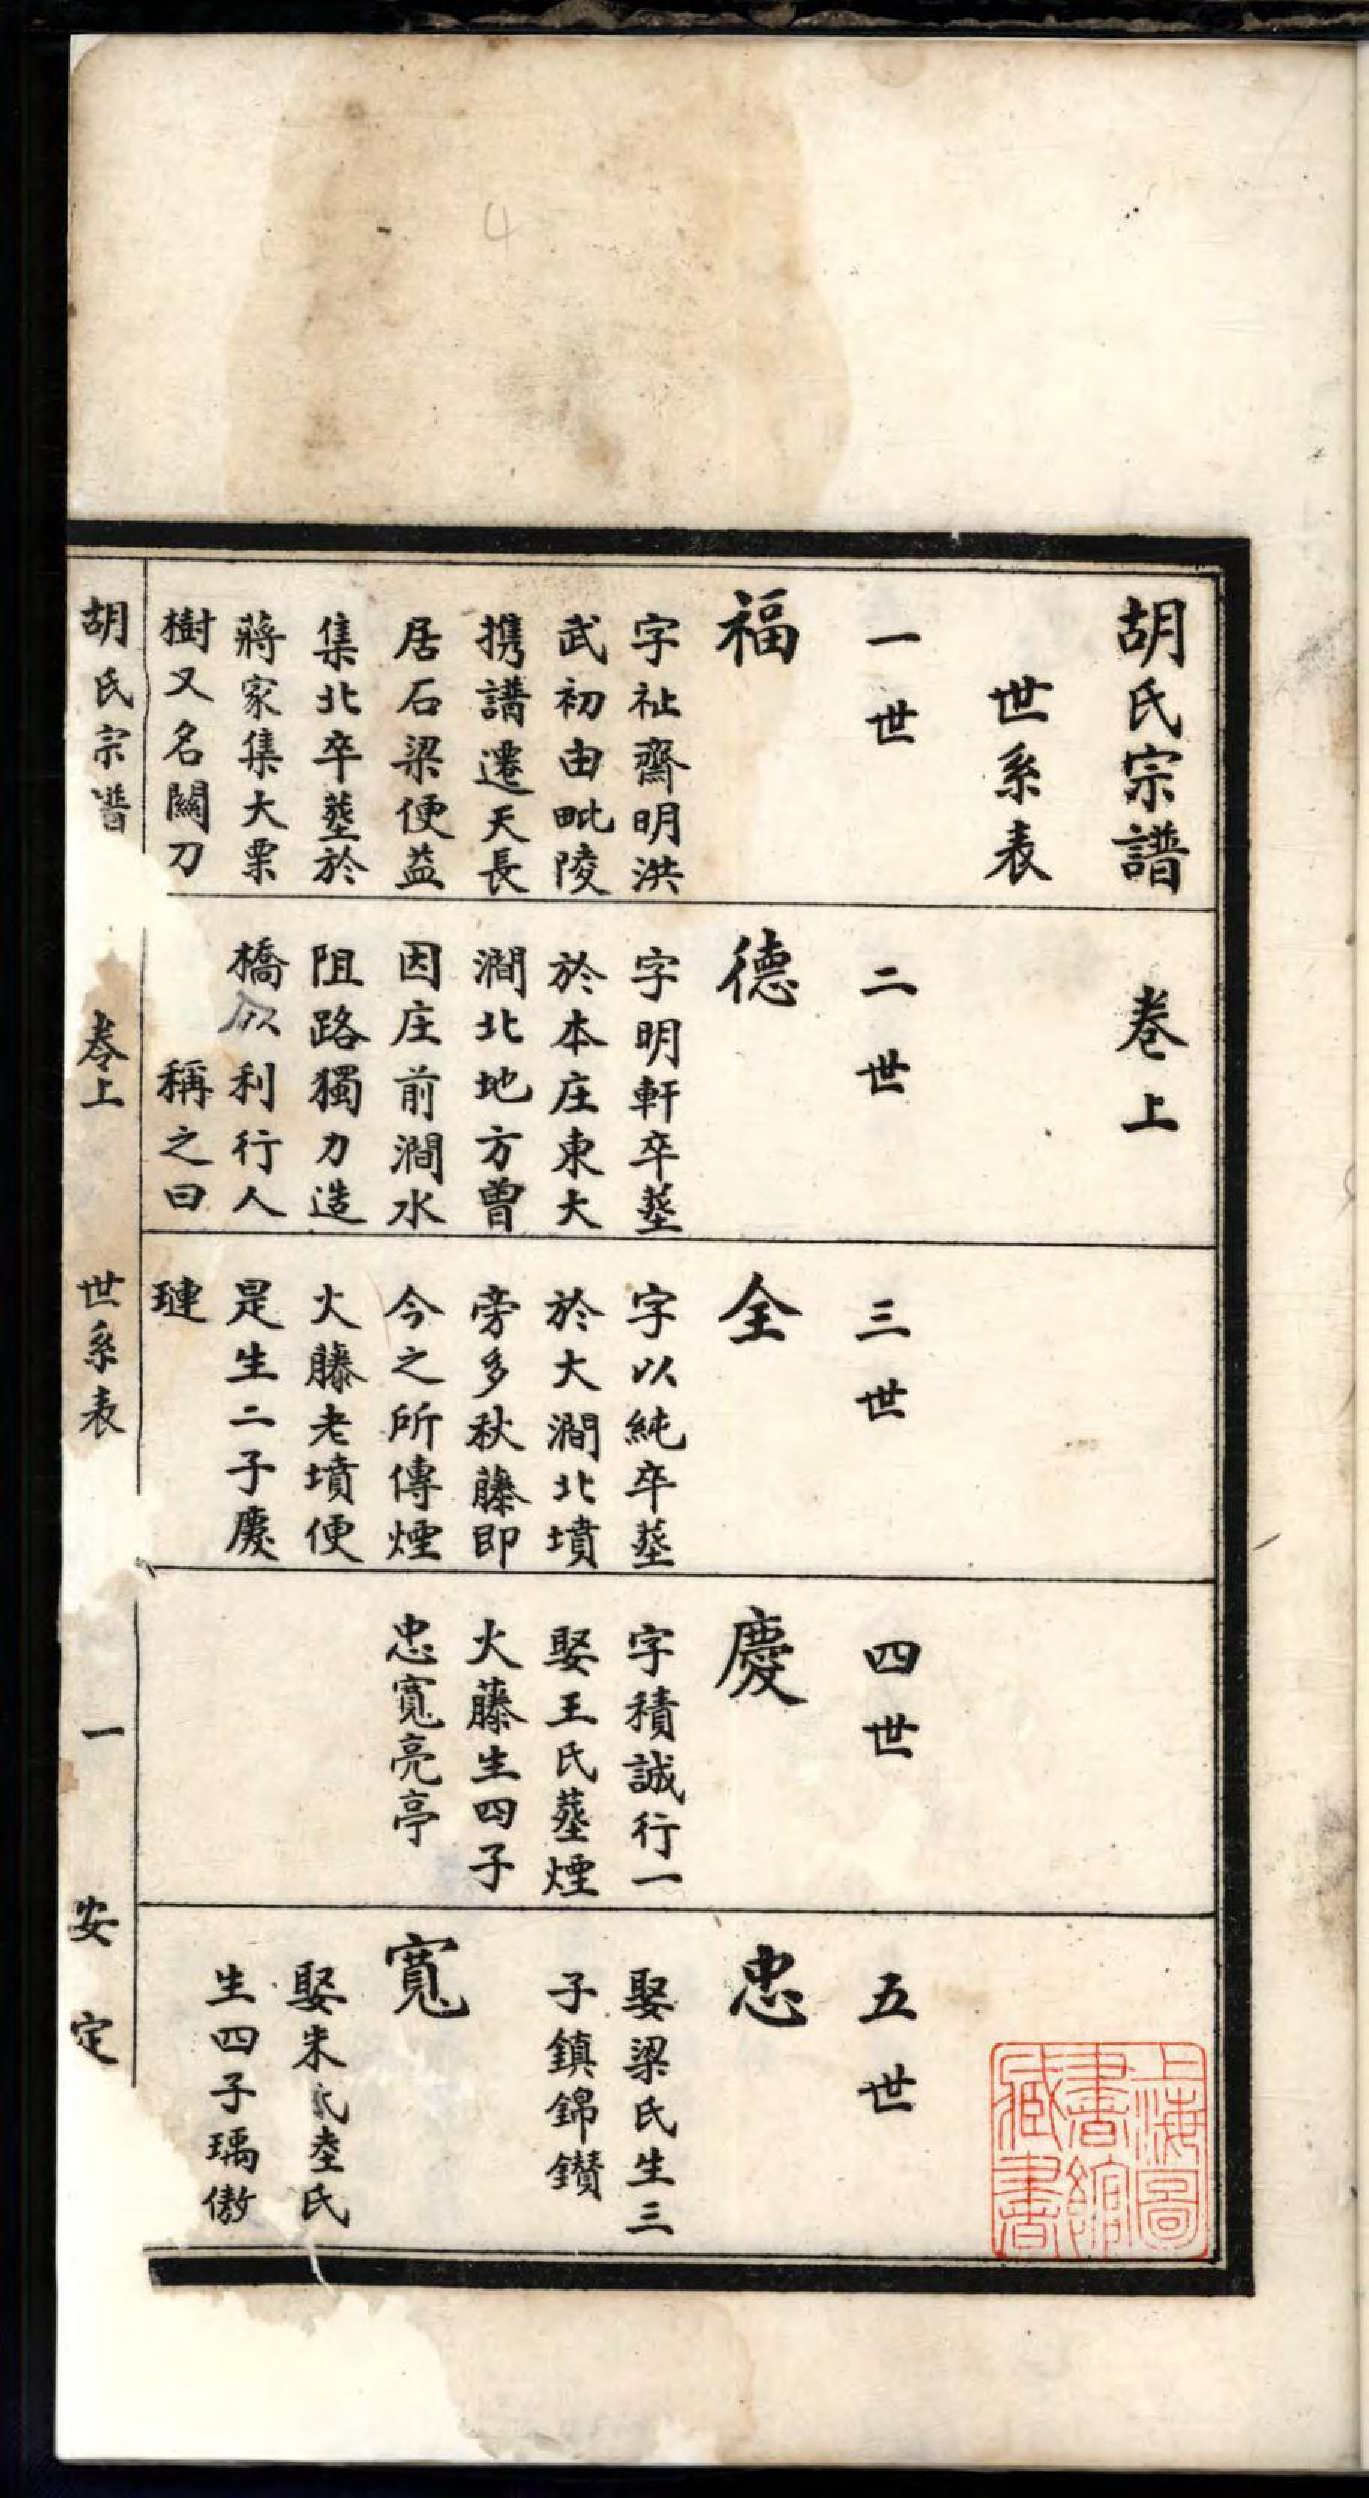 胡氏宗譜 卷上
世系表
一世
福
字祉齋明洪
武初由毗陵
携譜遷天長
居石梁便益
集北卒塟於
蔣家集大栗
樹又名關刀
二世
德
字明軒卒塟
於本庄東大
澗北地方曾
因庄前澗水
阻路獨力造
橋以利行人
稱之曰
三世
全
字以純卒塟
於大澗北墳
旁多秋藤即
今之所傳煙
火藤老墳便
是生二子慶
璉
四世
慶
字積誠行一
娶王氏塟煙
火藤生四子
忠寬亮亭
五世
忠
娶梁氏生三
子鎮錦鑽
寬
娶朱氏奎氏
生四子瑀傲
胡氏宗譜
卷上
世系表
一
安定
上海圖書館藏書